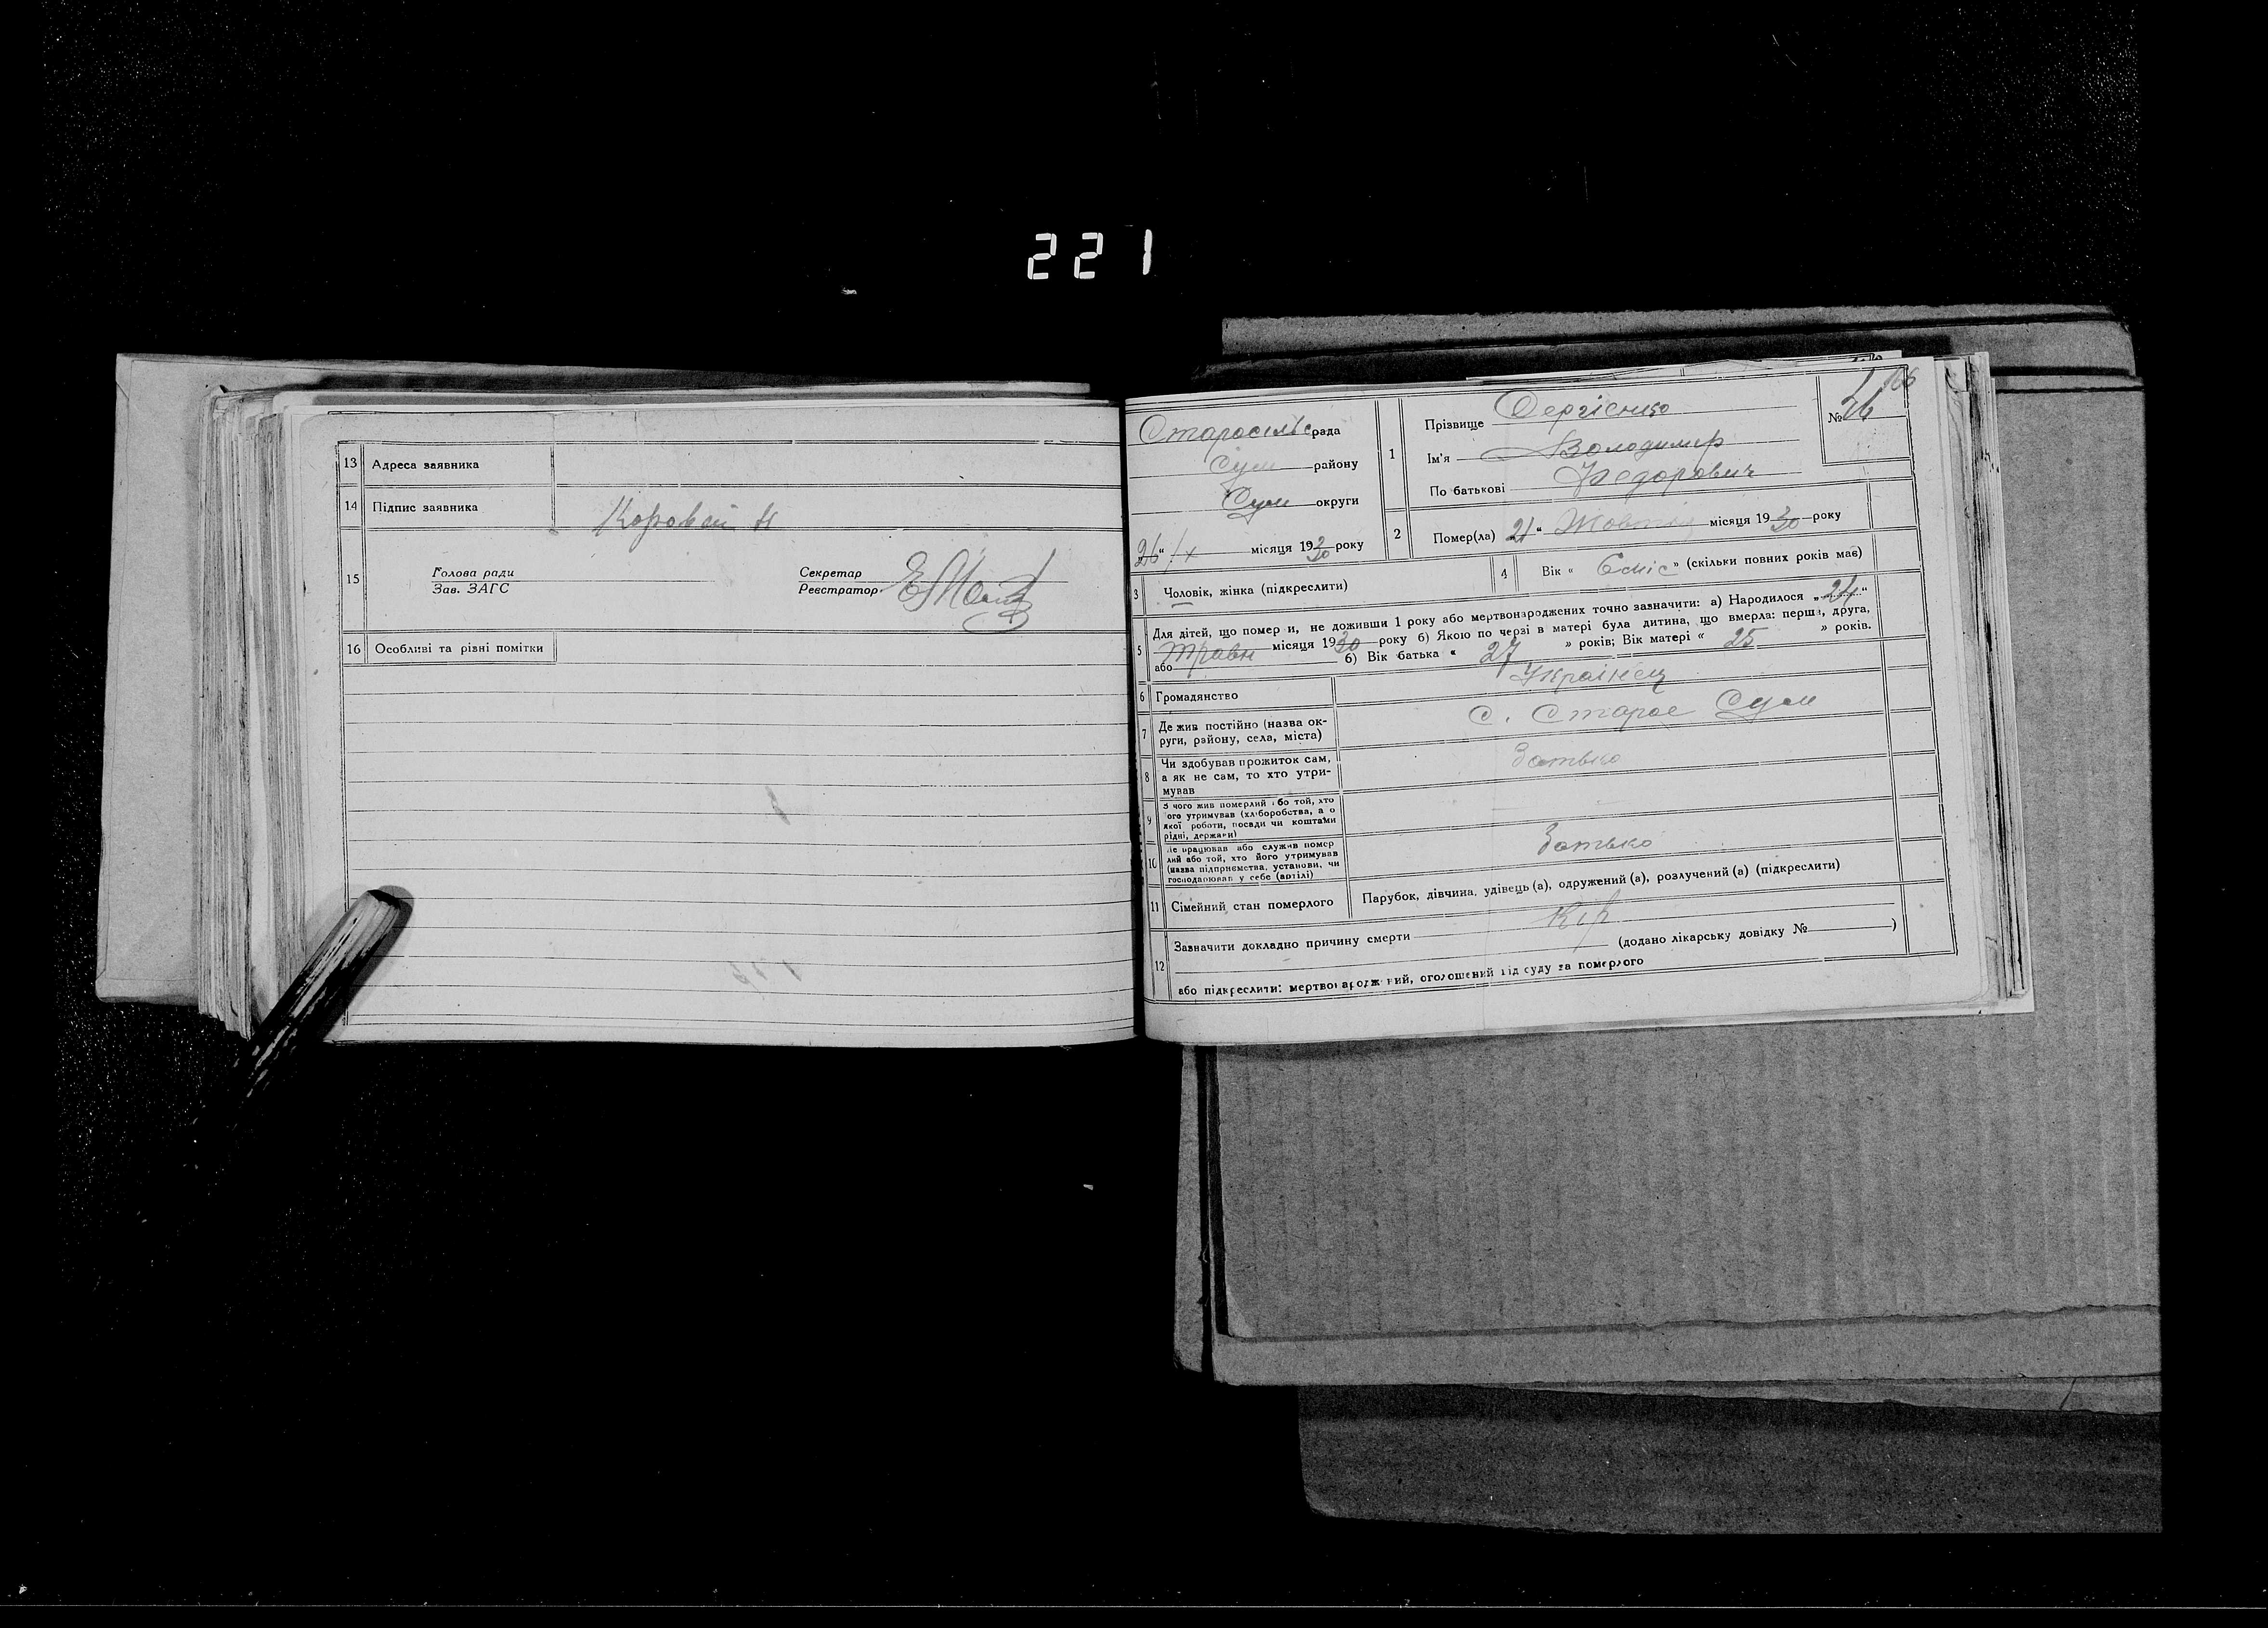 221
13 Адреса заявника
14 Підпис заявника Коровай Н
15 Голова ради
Зав. ЗАГС
Секретар
Реєстратор
16 Особливі та рівні помітки
166
Старосільс рада
Сум району
Сум округи
26 " місяця 1930 року
1 Прізвище Сергієнко
Ім'я Володимир
По батькові Федорович
№ 26
2 Помер(ла) 21 " Жовтня місяця 1930 року
3 Чоловік, жінка (підкреслити)
4 Вік « 6 міс » (скільки повних років має)
5 Для дітей, що помер и, не доживши 1 року або мертвонароджених точно зазначити: а) Народилося „ 24 “
Травн місяця 1930 року б) Якою по черзі в матері була дитина, що вмерла: перша, друга,
або б) Вік батька « 27 » років; Вік матері « 25 » років.
6 Громадянство Українец
7 Де жив постійно (назва ок-
руги, району, села, міста) С. Старое Сум
8 Чи здобував прожиток сам,
а як не сам, то хто утри-
мував Батько
9 З чого жив померлий або той, хто
ого утримував (хліборобства, а о
якої роботи, посади чи коштами
рідні, держави)
10 Де працював або служив помер
лий або той, хто його утримував
(назва підприємства, установи, чи
господарював у себе (артілі) Батько
11 Сімейний стан померлого Парубок, дівчина, удівець (а), одружений (а), розлучений (а) (підкреслити)
12 Зазначити докладно причину смерти Кір
(додано лікарську довідку № )
або підкреслити: мертвонароджений, оголошений від суду за померлого